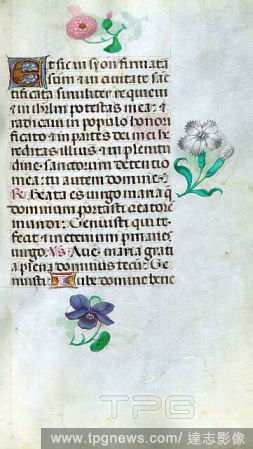 Et sic in syon firmata
sum et in civitate sanc
tificata similiter requievi
et in ihrlm potestas mea: et
radicavi in populo honori
ficato et in partes dei mei he
reditas illius et in plenitu
dine sanctorum detentio
mea: tu autem domine.
R. Beata es virgo maria que
dominum portasti creatorem
mundi: Genuisti qui te
fecit et in eternum permanes
virgo. Vs. Ave maria grati
a plena dominus tecum: Ge
nuisti: Iube domine bene
TPG
www.tpgnews.com/ 達志影像